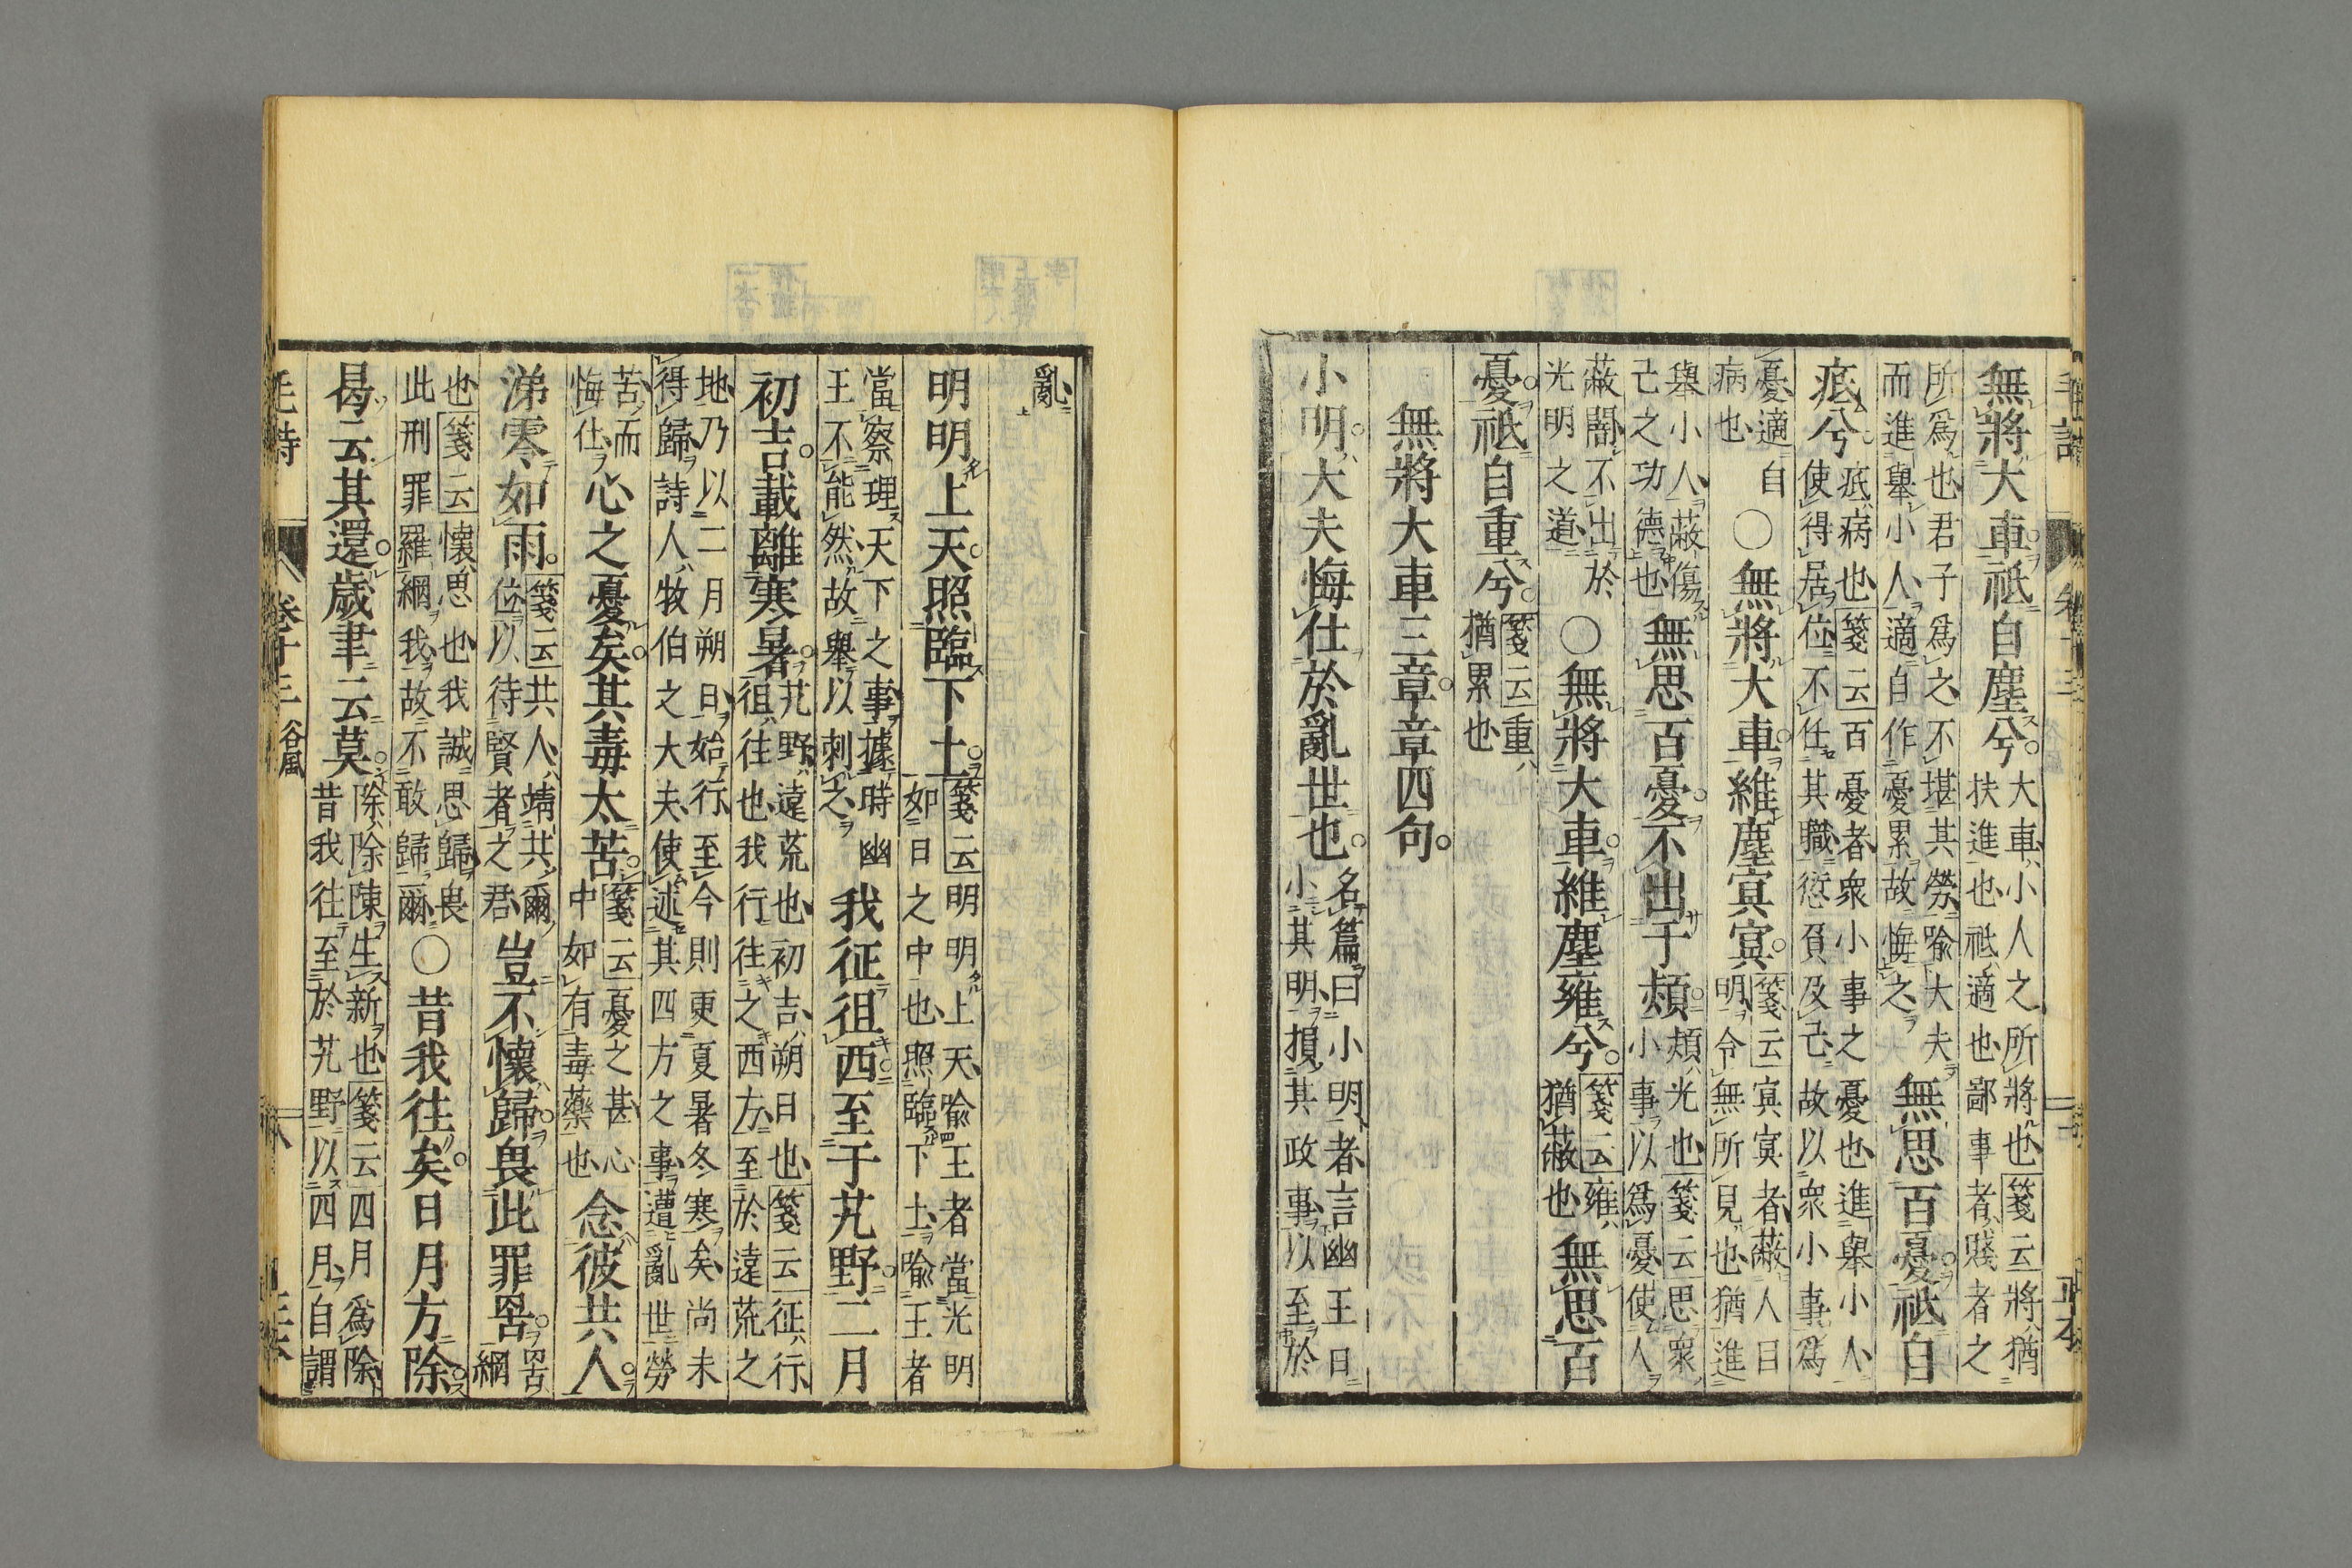 毛詩 卷十三
無將大車祇自塵兮大車小人之所將也箋云將猶扶進也祇適也鄙事者賤者之
所爲也君子爲之不堪其勞喻大夫而進舉小人適自作憂累故悔之無思百憂祇自
疧兮疧病也箋云百憂者衆小事之憂也進舉小人使得居位不任其職愆負及己故以衆小事爲
憂適自病也○無將大車維塵冥冥箋云冥冥者蔽人目明令無所見也猶進
舉小人蔽傷己之功德也無思百憂不出于熲熲光也箋云思衆小事以爲憂使人
蔽闇不出於光明之道○無將大車維塵雍兮箋云雍猶蔽也無思百
憂祇自重兮箋云重猶累也
無將大車三章章四句
小明大夫悔仕於亂世也名篇曰小明者言幽王日小其明損其政事以至於
亂
明明上天照臨下土箋云明明上天喻王者當光明如日之中也照臨下土喻王者
當察理天下之事據時幽王不能然故舉以刺之我征徂西至于艽野二月
初吉載離寒暑艽野遠荒也初吉朔日也箋云征行徂往也我行往之西方至於遠荒之
地乃以二月朔日始行至今則更夏暑冬寒矣尚未得歸詩人牧伯之大夫使述其四方之事遭亂世勞
苦而悔仕心之憂矣其毒太苦箋云憂之甚心中如有毒藥也念彼共人
涕零如雨箋云共人靖共爾位以待賢者之君豈不懷歸畏此罪罟罟網
也箋云懷思也我誠思歸畏此刑罪羅網我故不敢歸爾○昔我往矣日月方除
曷云其還歲聿云莫除除陳生新也箋云四月爲除昔我往至於艽野以四月自謂
毛詩 卷十三 谷風 八